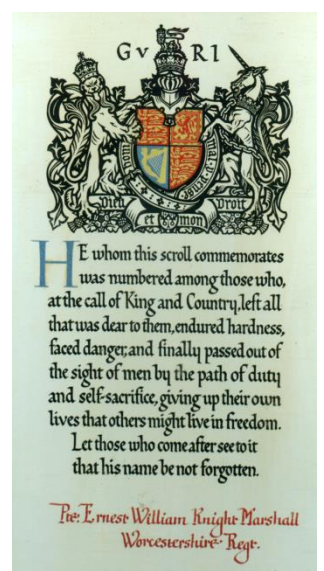 GV RI
Dieu et mon Droit
HE whom this scroll commemorates
was numbered among those who,
at the call of King and Country, left all
that was dear to them, endured hardness,
faced danger, and finally passed out of
the sight of men by the path of duty
and self-sacrifice, giving up their own
lives that others might live in freedom.
Let those who come after see to it
that his name be not forgotten.
Pte. Ernest William Knight Marshall
Worcestershire Regt.